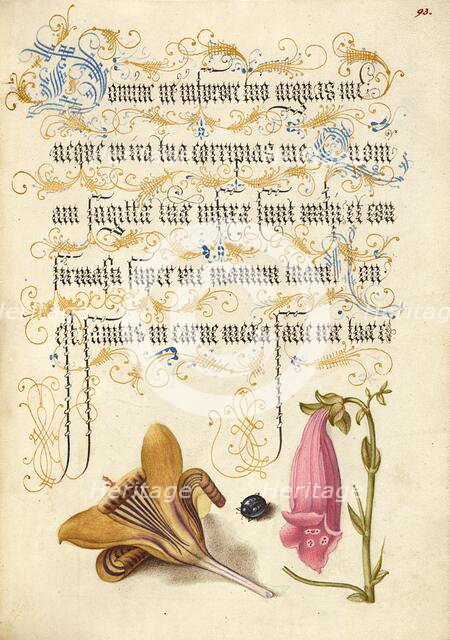 93.
Domine ne in furore tuo arguas me
neque in ira tua corripias me Quoni
am sagitte tue infixe sunt mihi et con
firmasti super me manum tuam
sanitas in carne mea facie ire
Heritage
Heritage
Heritage
Heritage